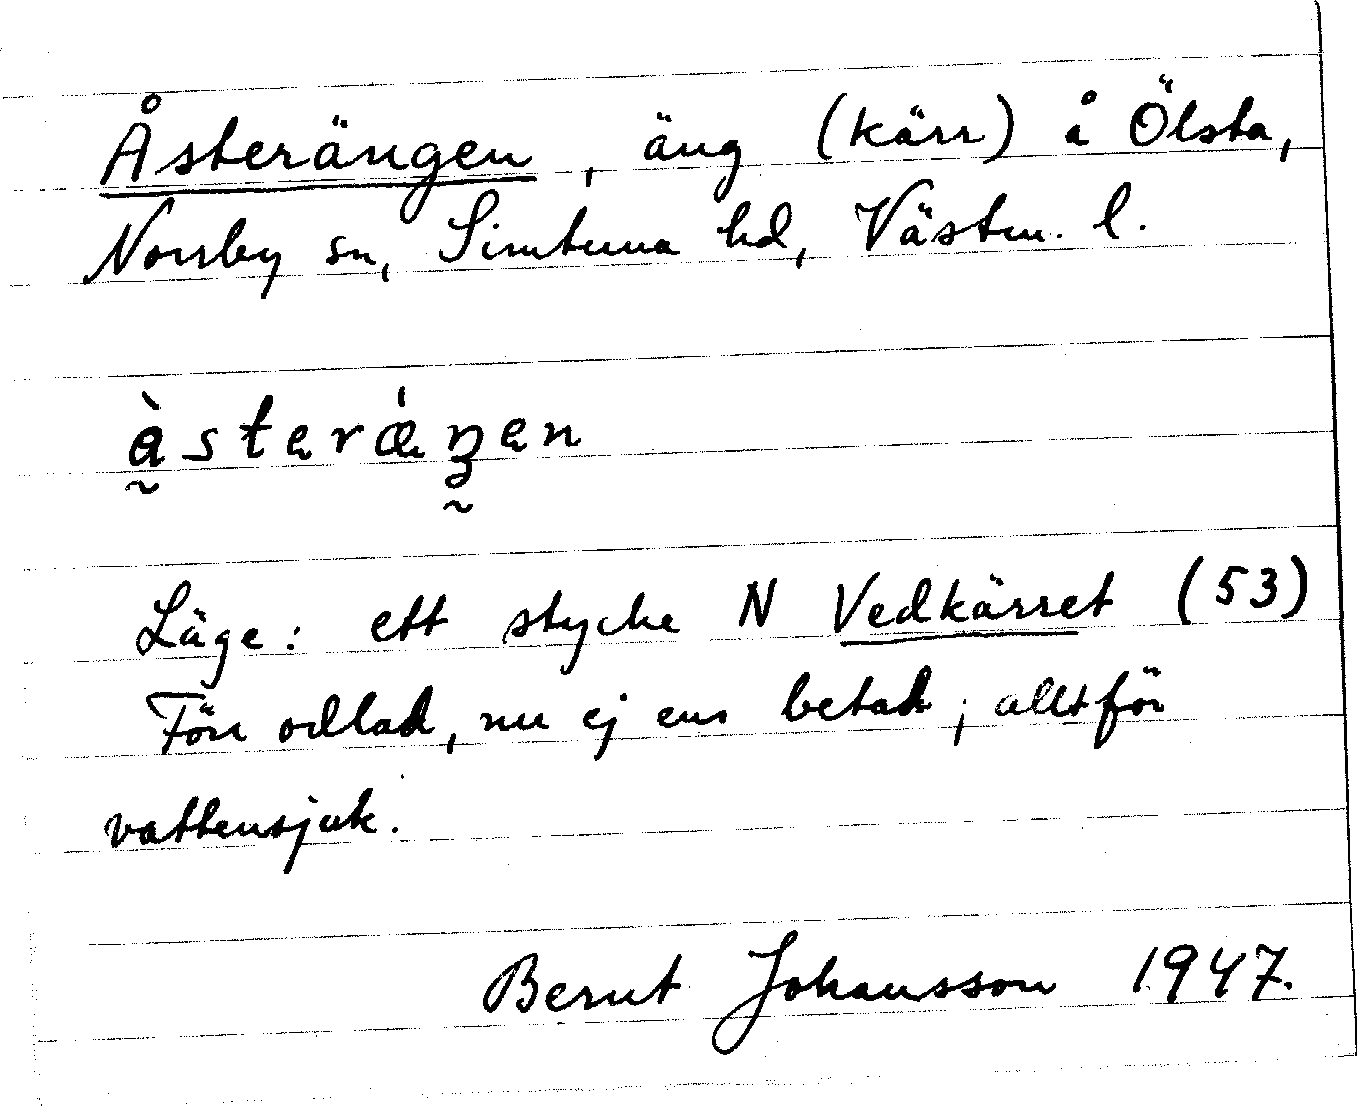 Åsterängen, äng (kärr) å Ölsta,
Norrby sn, Simtuna hd, Västm. l.
àsterǽŋen
Läge: ett stycke N Vedkärret (53)
Förr odlad, nu ej ens betad; alltför
vattensjuk.
Bernt Johansson 1947.